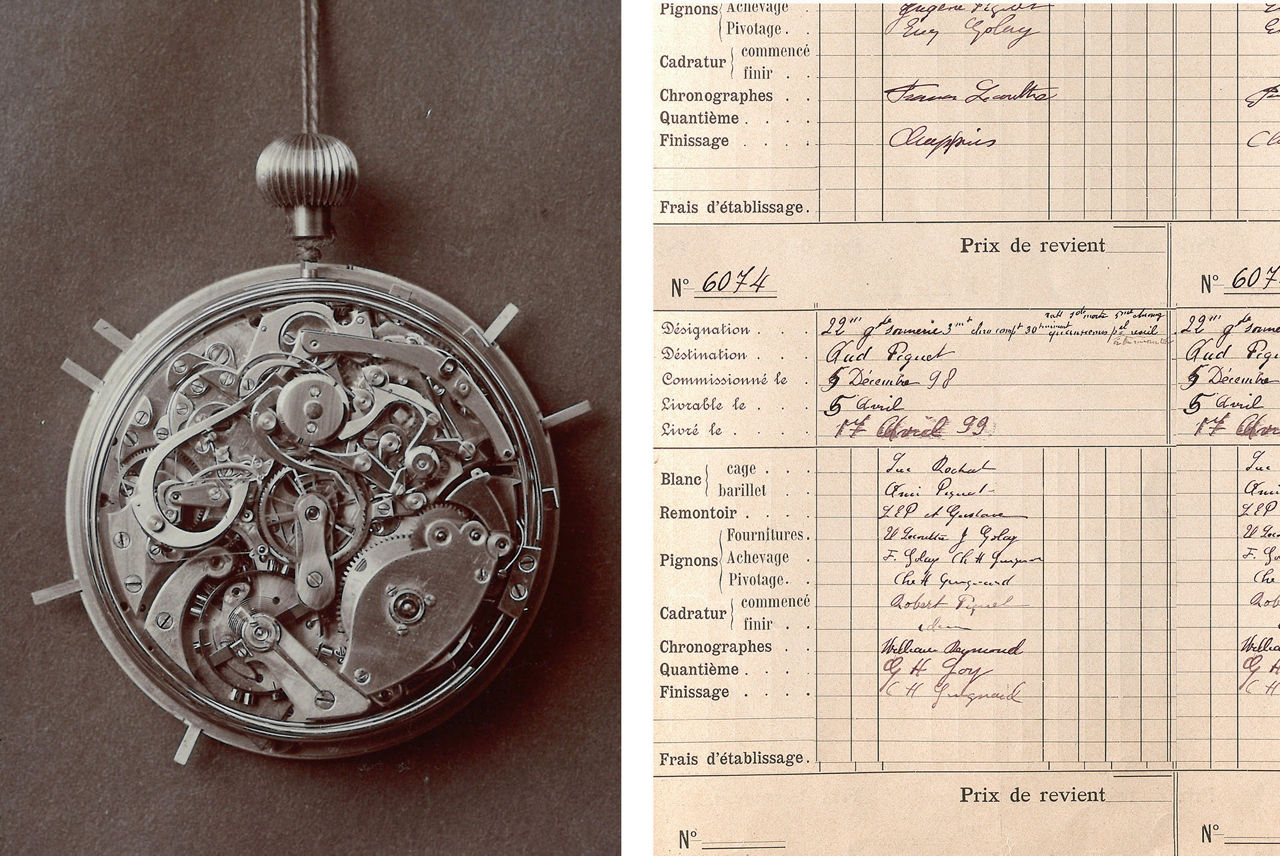 Pignons Achevage Eugène Piguet
Pivotage. . Eug Golay
Cadratur commencé
finir . .
Chronographes . . Lecoultre
Quantième . . . .
Finissage . . . Chappuis
Frais d'établissage.
Prix de revient
N° 6074
N° 607
Désignation . . . 22''' gde sonnerie 3 chro compt 30
22'''
Déstination . . . Aud Piguet
Aud
Commissionné le . 5 Décembre 98
5 Décembre
Livrable le . . . 5 Avril
5 Avril
Livré le . . . . 17 Avril 99
17
Blanc cage . . . Luc Rochat
barillet . . Ami Piguet
Remontoir . . LEP et Gustave
Pignons Fournitures. Lecoultre J Golay
Achevage . . F. Golay Ch H Guignard
Pivotage. . Chs H Guignard
Cadratur commencé Robert Piguet
finir . . idem
Chronographes . . William Reymond
Quantième . . . . G H Goy
Finissage . . . . C H Guignard
Frais d'établissage.
Prix de revient
N°
N°